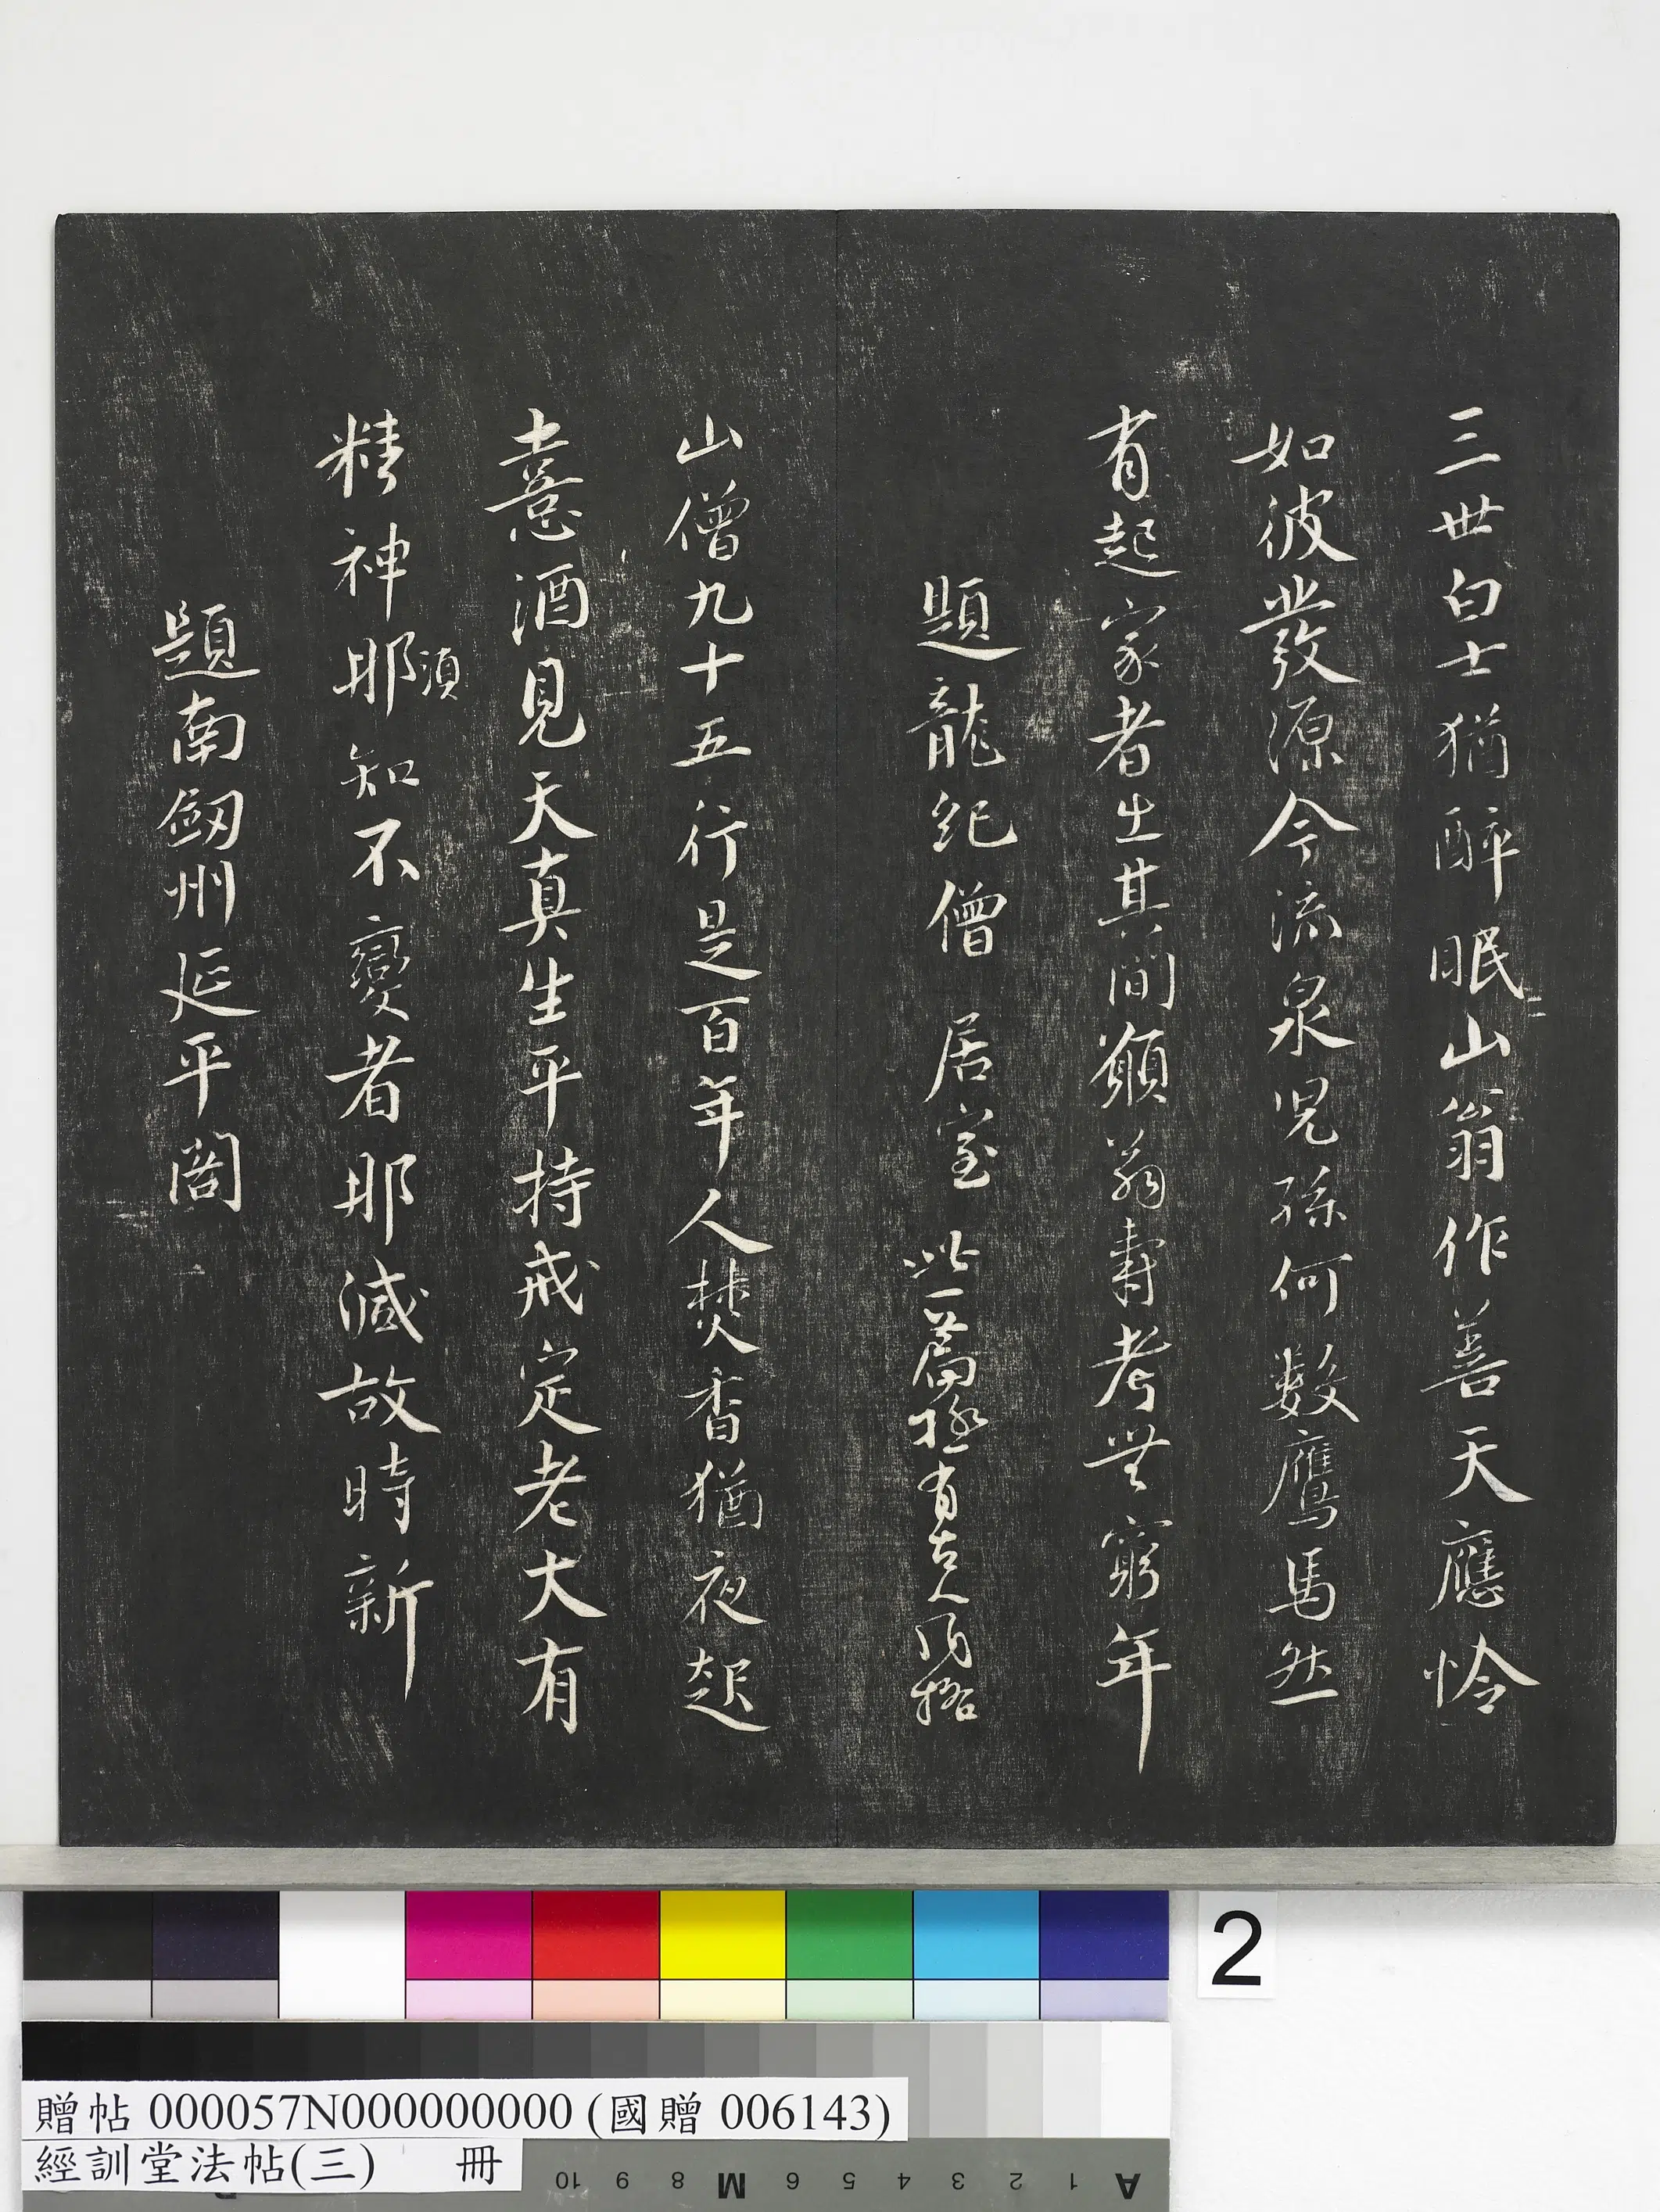 三世白士猶醉眠山翁作善天應怜
如彼發源今流泉兒孫何數鷹馬然
有起家者出其間願翁壽考無窮年
題龍紀僧居室 此一篇極有古人風格
山僧九十五行是百年人焚香猶夜起
憙酒見天真生平持戒定老大有
精神那知不變者那減故時新
須
題南劔州延平閣
2
贈帖 000057N000000000 (國贈 006143)
經訓堂法帖(三) 冊
10 9 8 M 6 5 4 3 2 1 A